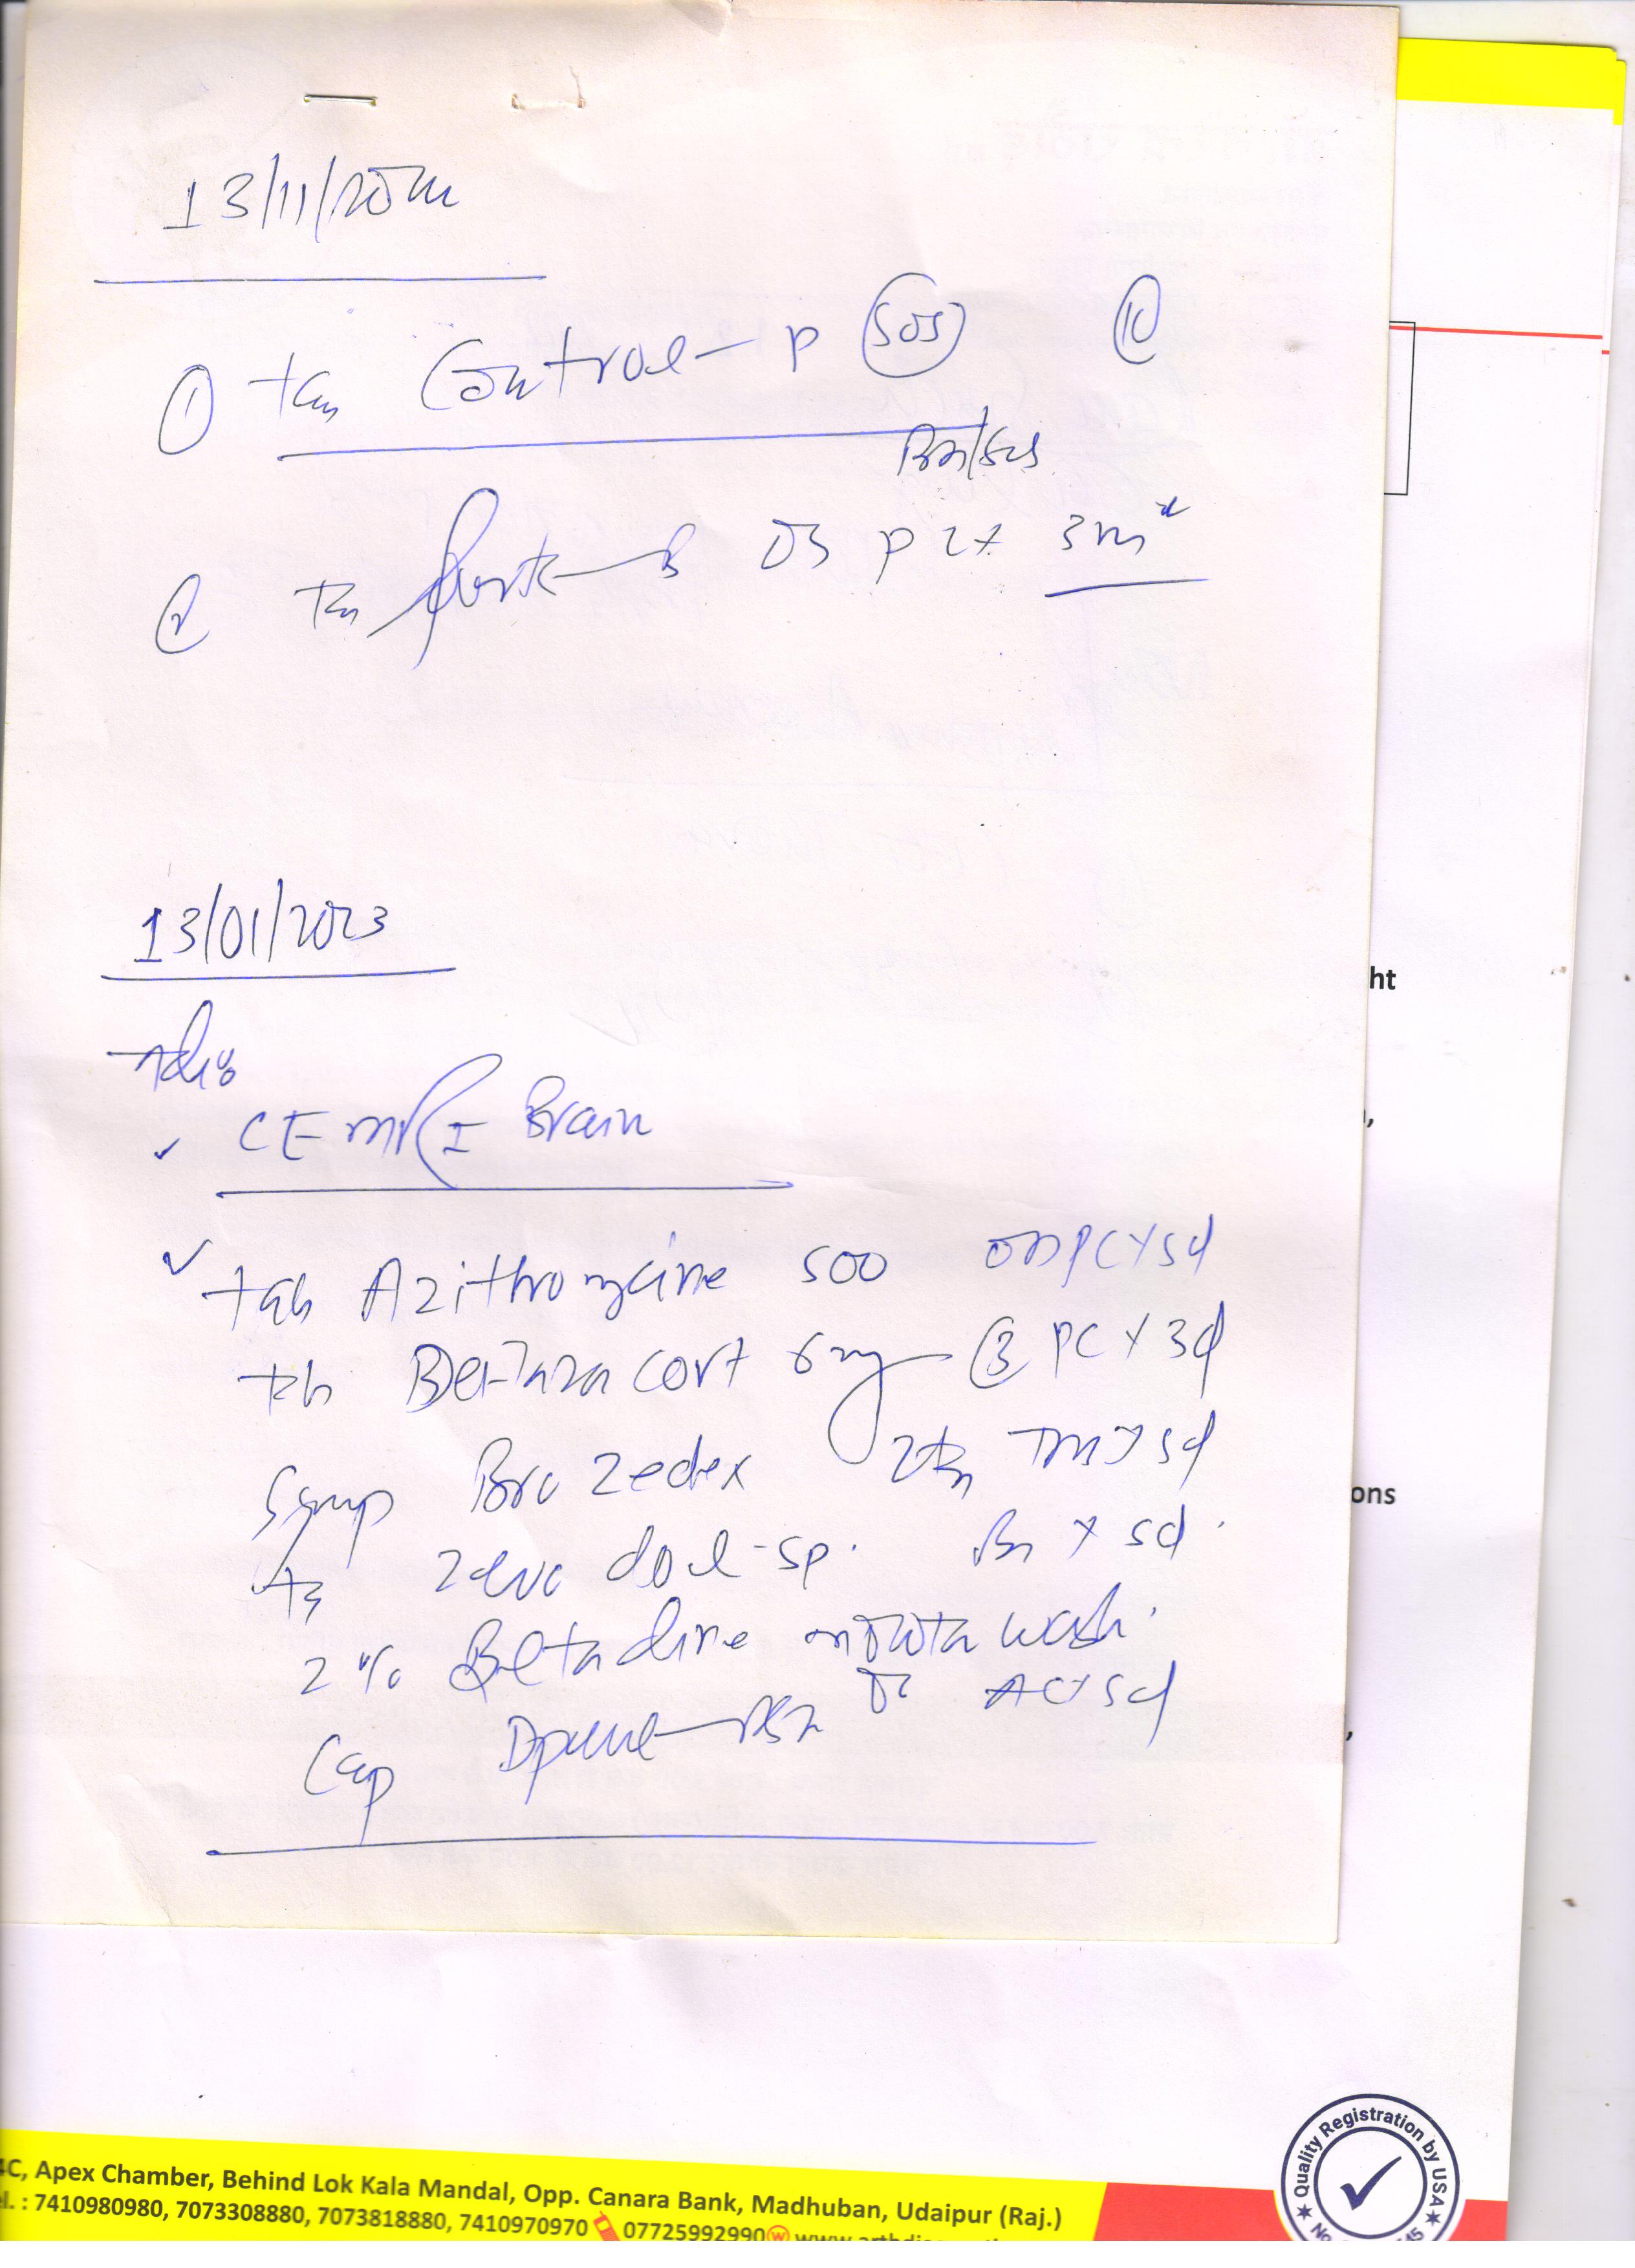 13/11/2022
① tab Control-P SOS ⑩
BD/SOS
② tab OD PC x 3m
13/01/2023
Adv
CE MRI Brain
tab Azithromycine 500 OD PC x 5d
tab Deflazacort 6mg PC x 3d
Syrup Bro Zedex TDS x 5d
Tab Zero dol-sp. BD x 5d.
2% Betadine mouth wash.
Cap DSR OD AC x 5d
ht
,
ons
,
4C, Apex Chamber, Behind Lok Kala Mandal, Opp. Canara Bank, Madhuban, Udaipur (Raj.)
el. : 7410980980, 7073308880, 7073818880, 7410970970 07725992990
Quality Registration by USA